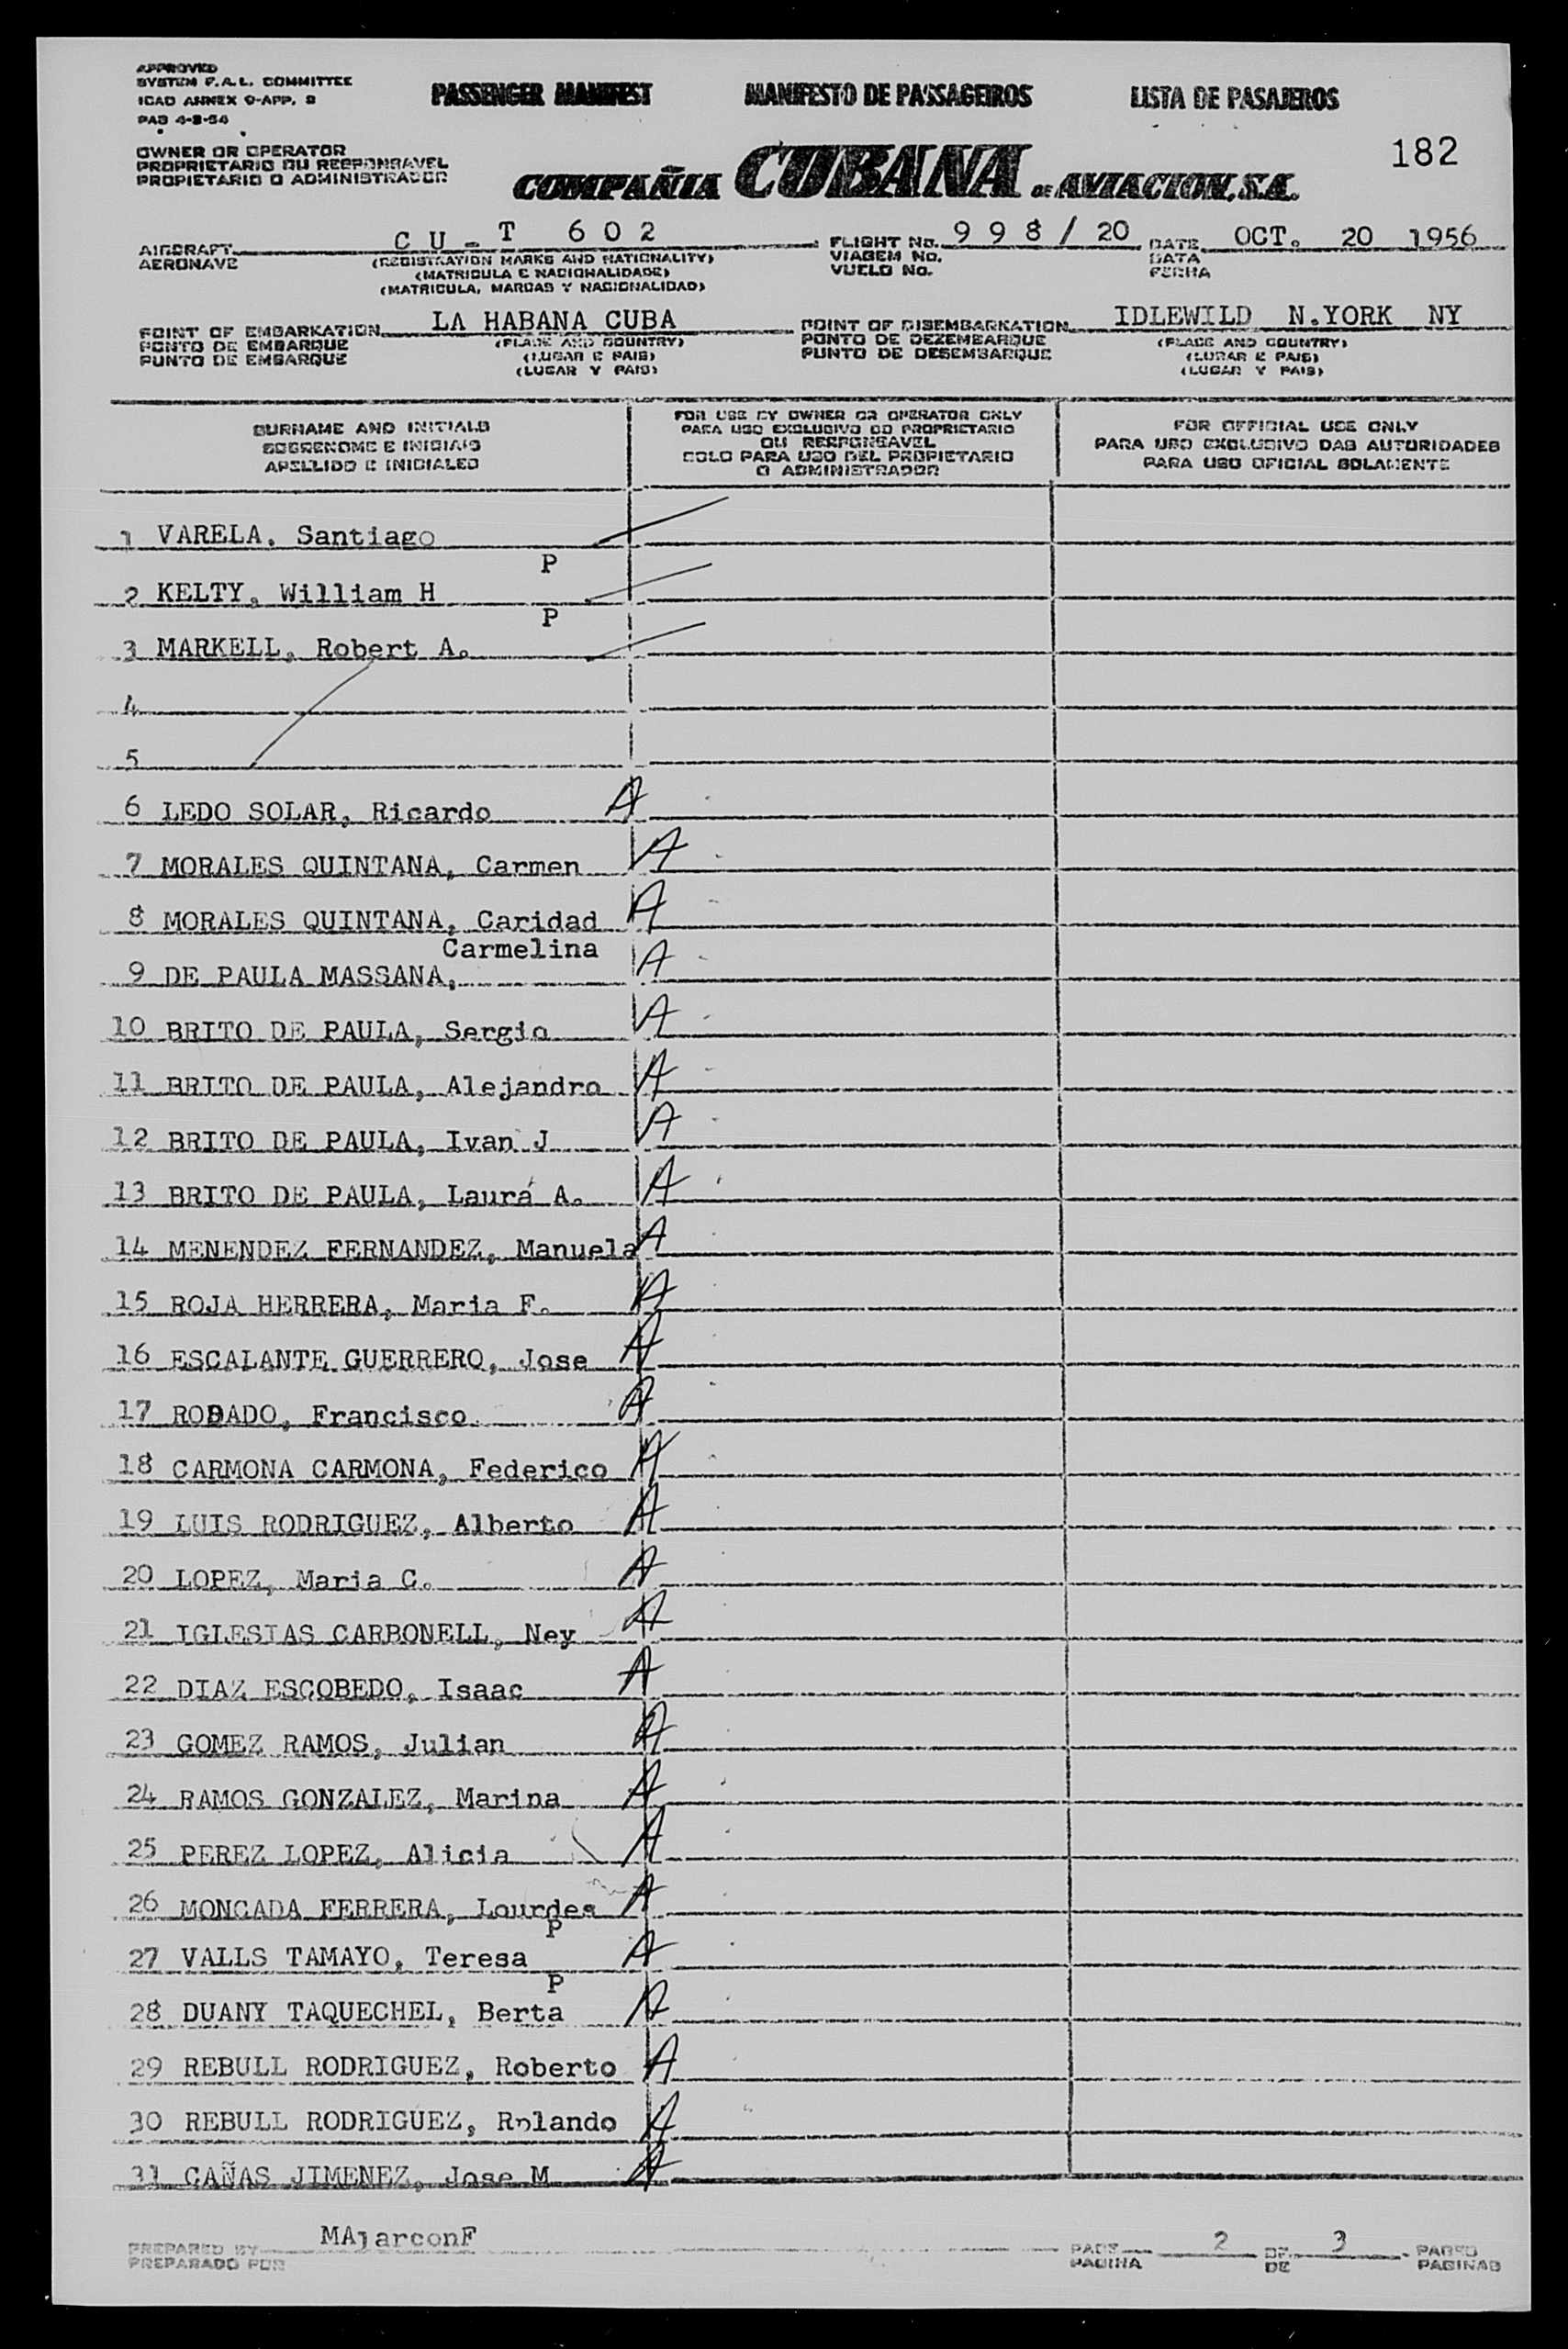 APPROVED
SYSTEM F.A.L. COMMITTEE
ICAO ANNEX 9-APP. 3
PAB 4-8-54
PASSENGER MANIFEST MANIFESTO DE PASSAGEIROS LISTA DE PASAJEROS
182
OWNER OR OPERATOR
PROPRIETARIO OU RESPONSAVEL
PROPIETARIO O ADMINISTRADOR
COMPAÑIA CUBANA DE AVIACION, S.A.
AIRCRAFT CU-T 602 FLIGHT No. 998/20 DATE OCT. 20 1956
AERONAVE (REGISTRATION MARKS AND NATIONALITY) VIAGEM No. DATA
(MATRICULA E NACIONALIDADE) VUELO No. FECHA
(MATRICULA, MARCAS Y NACIONALIDAD)
POINT OF EMBARKATION LA HABANA CUBA POINT OF DISEMBARKATION IDLEWILD N.YORK NY
PONTO DE EMBARQUE (PLACE AND COUNTRY) PONTO DE DEZEMBARQUE (PLACE AND COUNTRY)
PUNTO DE EMBARQUE (LUGAR E PAIS) PUNTO DE DESEMBARQUE (LUGAR E PAIS)
(LUGAR Y PAIS) (LUGAR Y PAIS)
SURNAME AND INITIALS
SOBRENOME E INICIAIS
APELLIDO E INICIALES
FOR USE BY OWNER OR OPERATOR ONLY
PARA USO EXCLUSIVO DO PROPRIETARIO
OU RESPONSAVEL
SOLO PARA USO DEL PROPIETARIO
O ADMINISTRADOR
FOR OFFICIAL USE ONLY
PARA USO EXCLUSIVO DAS AUTORIDADES
PARA USO OFICIAL SOLAMENTE
1 VARELA, Santiago
P
2 KELTY, William H
P
3 MARKELL, Robert A.
4
5
6 LEDO SOLAR, Ricardo A
7 MORALES QUINTANA, Carmen A
8 MORALES QUINTANA, Caridad A
Carmelina
9 DE PAULA MASSANA, A
10 BRITO DE PAULA, Sergio A
11 BRITO DE PAULA, Alejandro A
12 BRITO DE PAULA, Ivan J A
13 BRITO DE PAULA, Laura A. A
14 MENENDEZ FERNANDEZ, Manuela A
15 ROJA HERRERA, Maria F. A
16 ESCALANTE GUERRERO, Jose A
17 Francisco A
18 CARMONA CARMONA, Federico A
19 LUIS RODRIGUEZ, Alberto A
20 LOPEZ, Maria C. A
21 IGLESIAS CARBONELL, Ney A
22 DIAZ ESCOBEDO, Isaac A
23 GOMEZ RAMOS, Julian A
24 RAMOS GONZALEZ, Marina A
25 PEREZ LOPEZ, Alicia A
26 MONCADA FERRERA, Lourdes A
P
27 VALLS TAMAYO, Teresa A
P
28 DUANY TAQUECHEL, Berta A
29 REBULL RODRIGUEZ, Roberto A
30 REBULL RODRIGUEZ, Rolando A
31 CAÑAS JIMENEZ, Jose M A
PREPARED BY MAjarconF PAGE 2 OF 3 PAGES
PREPARADO POR PAGINA DE PAGINAS